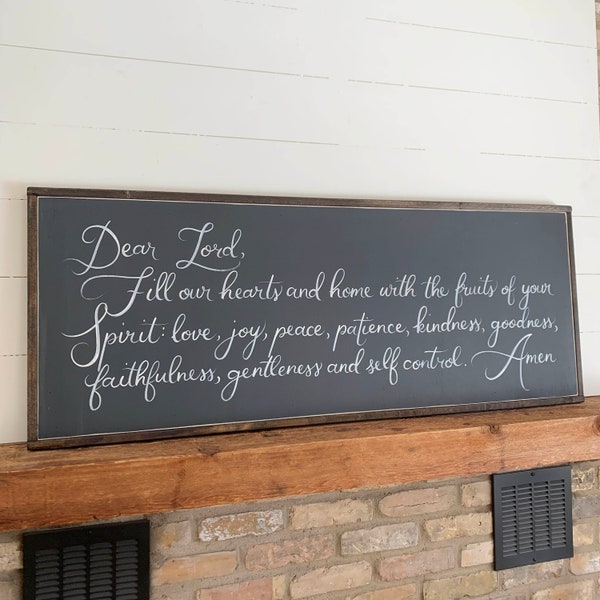 Dear Lord,
Fill our hearts and home with the fruits of your
Spirit: love, joy, peace, patience, kindness, goodness,
faithfulness, gentleness and self control. Amen